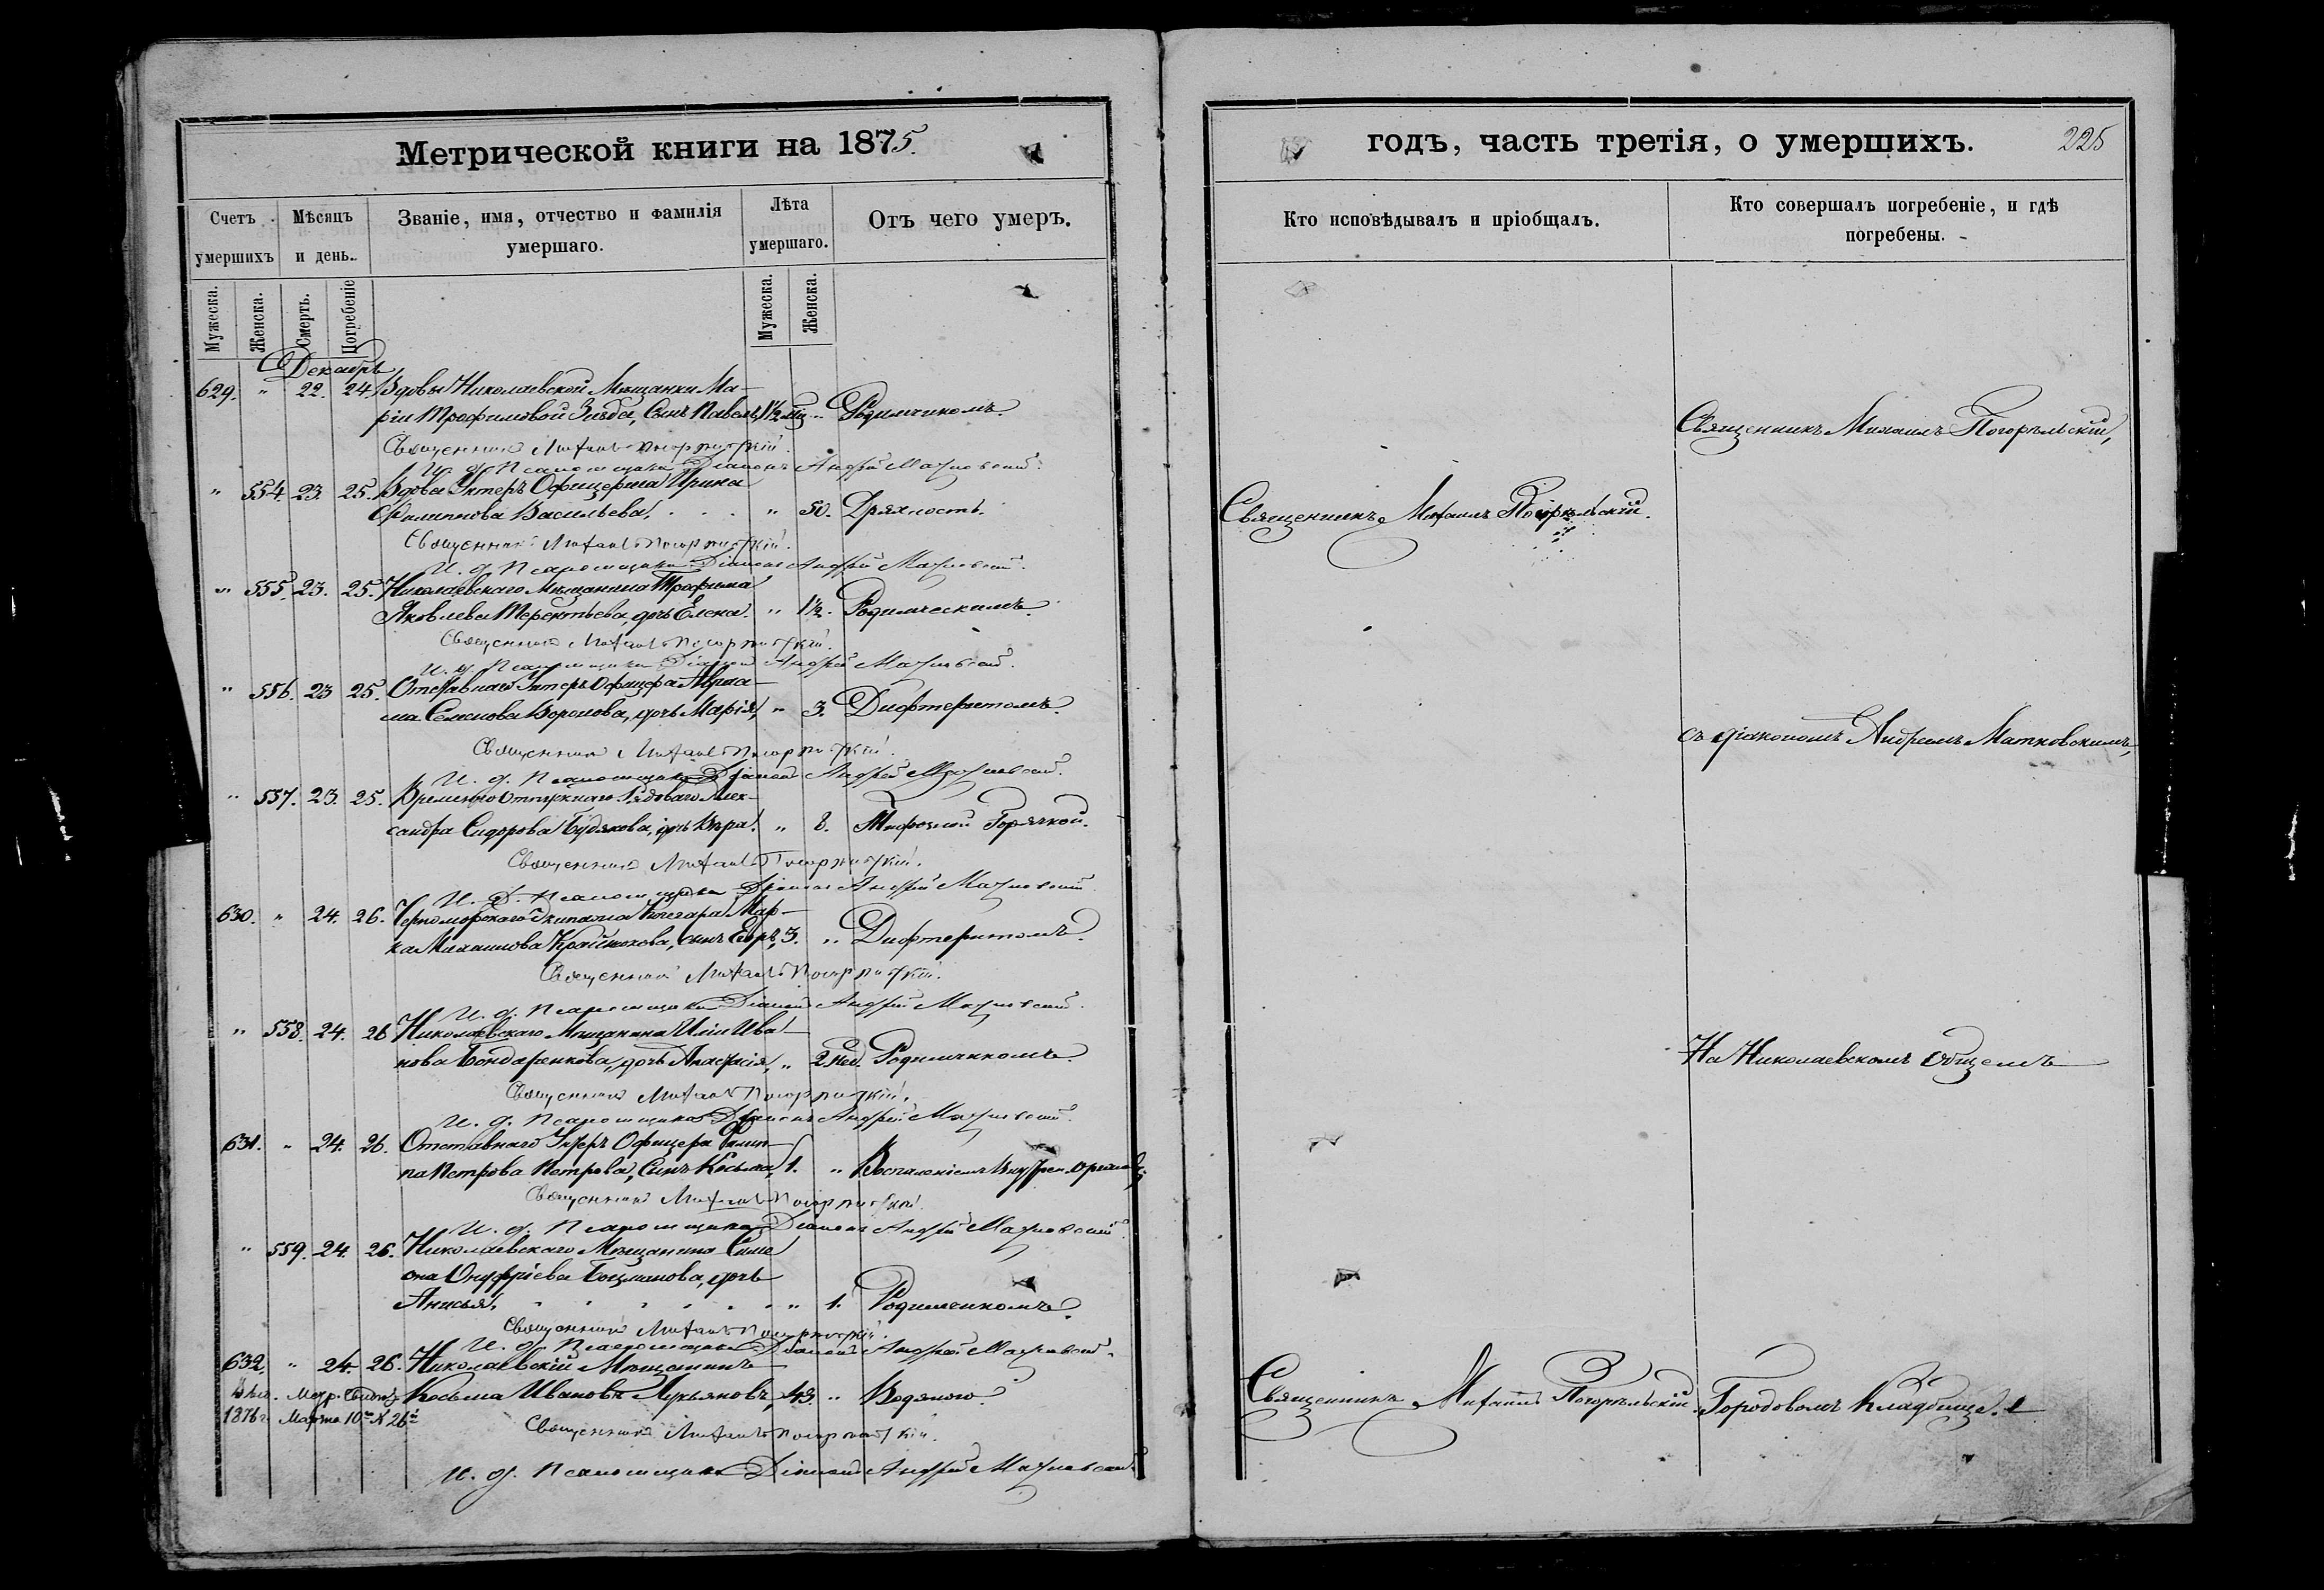 Метрической книги на 1875.
Счетъ умершихъ
Мѣсяцъ и день.
Званіе, имя, отчество и фамилія умершаго.
Лѣта умершаго.
Отъ чего умеръ.
Мужеска. Женска. Смерть. Погребеніе Мужеска. Женска.
Декабрь
629. " 22. 24. Вдовы Николаевской Мѣщанки Ма-
ріи Трофимовой Сынъ Павелъ, 1½ мѣц. " Родимчикомъ.
Священникъ Михаилъ Погорѣльскій.
И. д. Псаломщика Діаконъ Андрей Матковскій.
" 554 23 25. Вдова Унтеръ Офицерша Ирина
Филиппова Васильева, " 50. Дряхлость.
Священникъ Михаилъ Погорѣльскій.
И. д. Псаломщика Діаконъ Андрей Матковскій.
" 555. 23. 25. Николаевскаго Мѣщанина Трофима
Яковлева Терентьева, дочь Елена. " 1½. Родимческимъ.
Священникъ Михаилъ Погорѣльскій.
И. д. Псаломщика Діаконъ Андрей Матковскій.
" 556. 23 25. Отставнаго Унтеръ Офицера Авраа-
ма Семенова Воронова, дочь Марія, " 3. Дифтеритомъ.
Священникъ Михаилъ Погорѣльскій.
И. д. Псаломщика Діаконъ Андрей Матковскій.
" 557. 23. 25. Временно Отпускнаго Рядоваго Алек-
сандра Сидорова Будякова, дочь Вѣра. " 8. Тифозной Горячкой.
Священникъ Михаилъ Погорѣльскій.
И. д. Псаломщика Діаконъ Андрей Матковскій
630. " 24. 26. Черноморскаго Экипажа Кочегара Мар-
ка Крайнюкова, сынъ 3. " Дифтеритомъ.
Священникъ Михаилъ Погорѣльскій.
И. д. Псаломщика Діаконъ Андрей Матковскій.
" 558. 24. 26 Николаевскаго Мѣщанина Иліи Ива-
нова Бондаренкова, дочь Анастасія, " 2 нед. Родимчикомъ.
Священникъ Михаилъ Погорѣльскій.
И. д. Псаломщика Діаконъ Андрей Матковскій.
631. " 24. 26. Отставнаго Унтеръ Офицера Филип-
па Петрова Петрова, Сынъ Косьма, 1. " Воспаленіемъ
Священникъ Михаилъ Погорѣльскій
И. д. Псаломщика Діаконъ Андрей Матковскій.
" 559. 24. 26. Николаевскаго Мѣщанина Симе
она Онуфріева Боцманова, дочь
Анисья, " 1. Родимчикомъ.
Священникъ Михаилъ Погорѣльскій.
И. д. Псаломщика Діаконъ Андрей Матковскій.
632. " 24. 26. Николаевскій Мѣщанинъ
Косьма Ивановъ Лукьяновъ, 43. " Водяного.
Метр. Свидѣт.
1876 г. Марта 10 N 26
Священникъ Михаилъ Погорѣльскій.
И. д. Псаломщика Діаконъ Андрей Матковскій.
годъ, часть третія, о умершихъ. 225
Кто исповѣдывалъ и пріобщалъ.
Кто совершалъ погребеніе, и гдѣ погребены.
Священникъ Михаилъ Погорѣльскій,
Священникъ Михаилъ Погорѣльскій.
съ діакономъ Андреемъ Матковскимъ,
На Николаевскомъ Общемъ
Священникъ Михаилъ Погорѣльскій.
Городовомъ Кладбище.